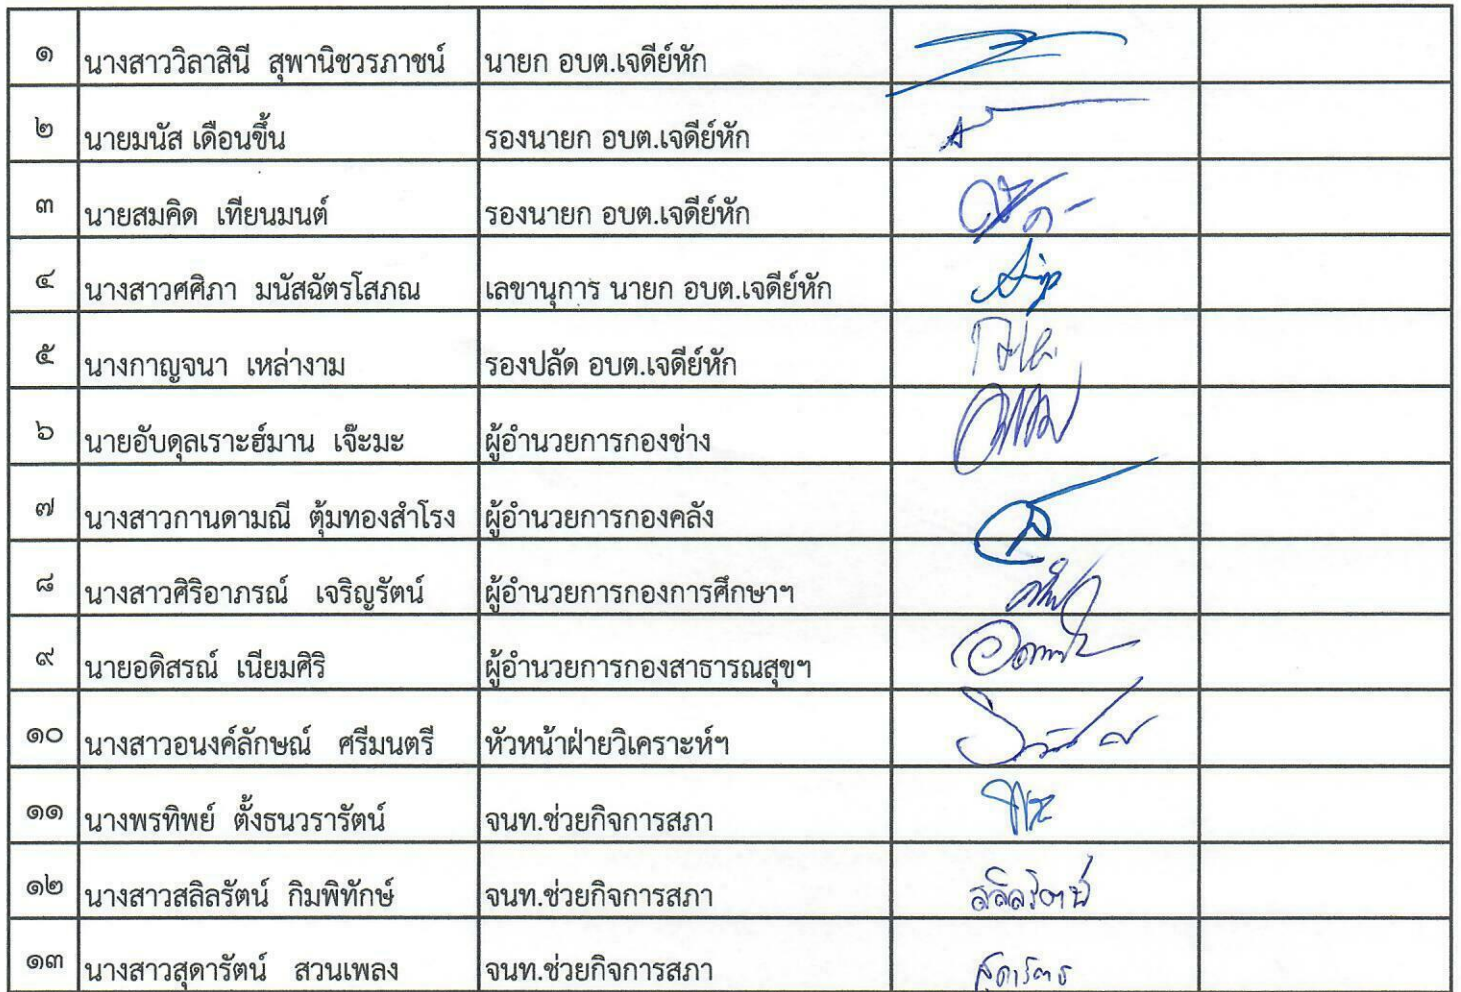 ๑ นางสาววิลาสินี สุพานิชวรภาชน์ นายก อบต.เจดีย์หัก
๒ นายมนัส เดือนขึ้น รองนายก อบต.เจดีย์หัก
๓ นายสมคิด เทียนมนต์ รองนายก อบต.เจดีย์หัก
๔ นางสาวศศิภา มนัสฉัตรโสภณ เลขานุการ นายก อบต.เจดีย์หัก
๕ นางกาญจนา เหล่างาม รองปลัด อบต.เจดีย์หัก
๖ นายอับดุลเราะฮ์มาน เจ๊ะมะ ผู้อำนวยการกองช่าง
๗ นางสาวกานดามณี ตุ้มทองสำโรง ผู้อำนวยการกองคลัง
๘ นางสาวศิริอาภรณ์ เจริญรัตน์ ผู้อำนวยการกองการศึกษาฯ
๙ นายอดิสรณ์ เนียมศิริ ผู้อำนวยการกองสาธารณสุขฯ
๑๐ นางสาวอนงค์ลักษณ์ ศรีมนตรี หัวหน้าฝ่ายวิเคราะห์ฯ
๑๑ นางพรทิพย์ ตั้งธนวรารัตน์ จนท.ช่วยกิจการสภา
๑๒ นางสาวสลิลรัตน์ กิมพิทักษ์ จนท.ช่วยกิจการสภา
๑๓ นางสาวสุดารัตน์ สวนเพลง จนท.ช่วยกิจการสภา